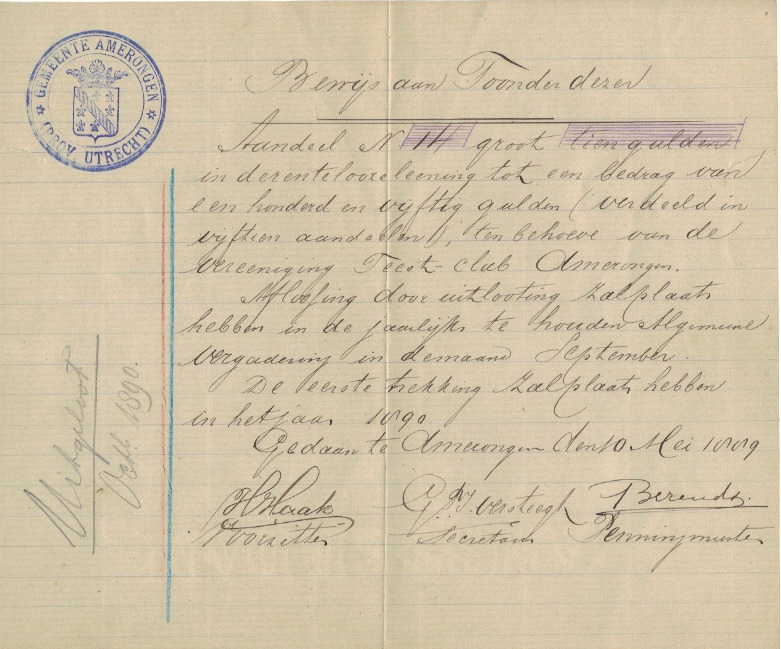 GEMEENTE AMERONGEN
(PROV. UTRECHT)
Bewijs aan Toonder dezer
Aandeel N 14 groot tien gulden
in de rentelooze leening tot een bedrag van
een honderd en vijftig gulden (verdeeld in
vijftien aandeelen), ten behoeve van de
Vereeniging Feest-club Amerongen.
Aflossing door uitlooting zal plaats
hebben in de jaarlijks te houden Algemeene
Vergadering in de maand September.
De eerste trekking zal plaats hebben
in het jaar 1890
Gedaan te Amerongen den 10 Mei 1889
Haak
G. J. Versteegh
Berends.
Voorzitter
Secretaris
Penningmeester
Uitgeloot
1890.